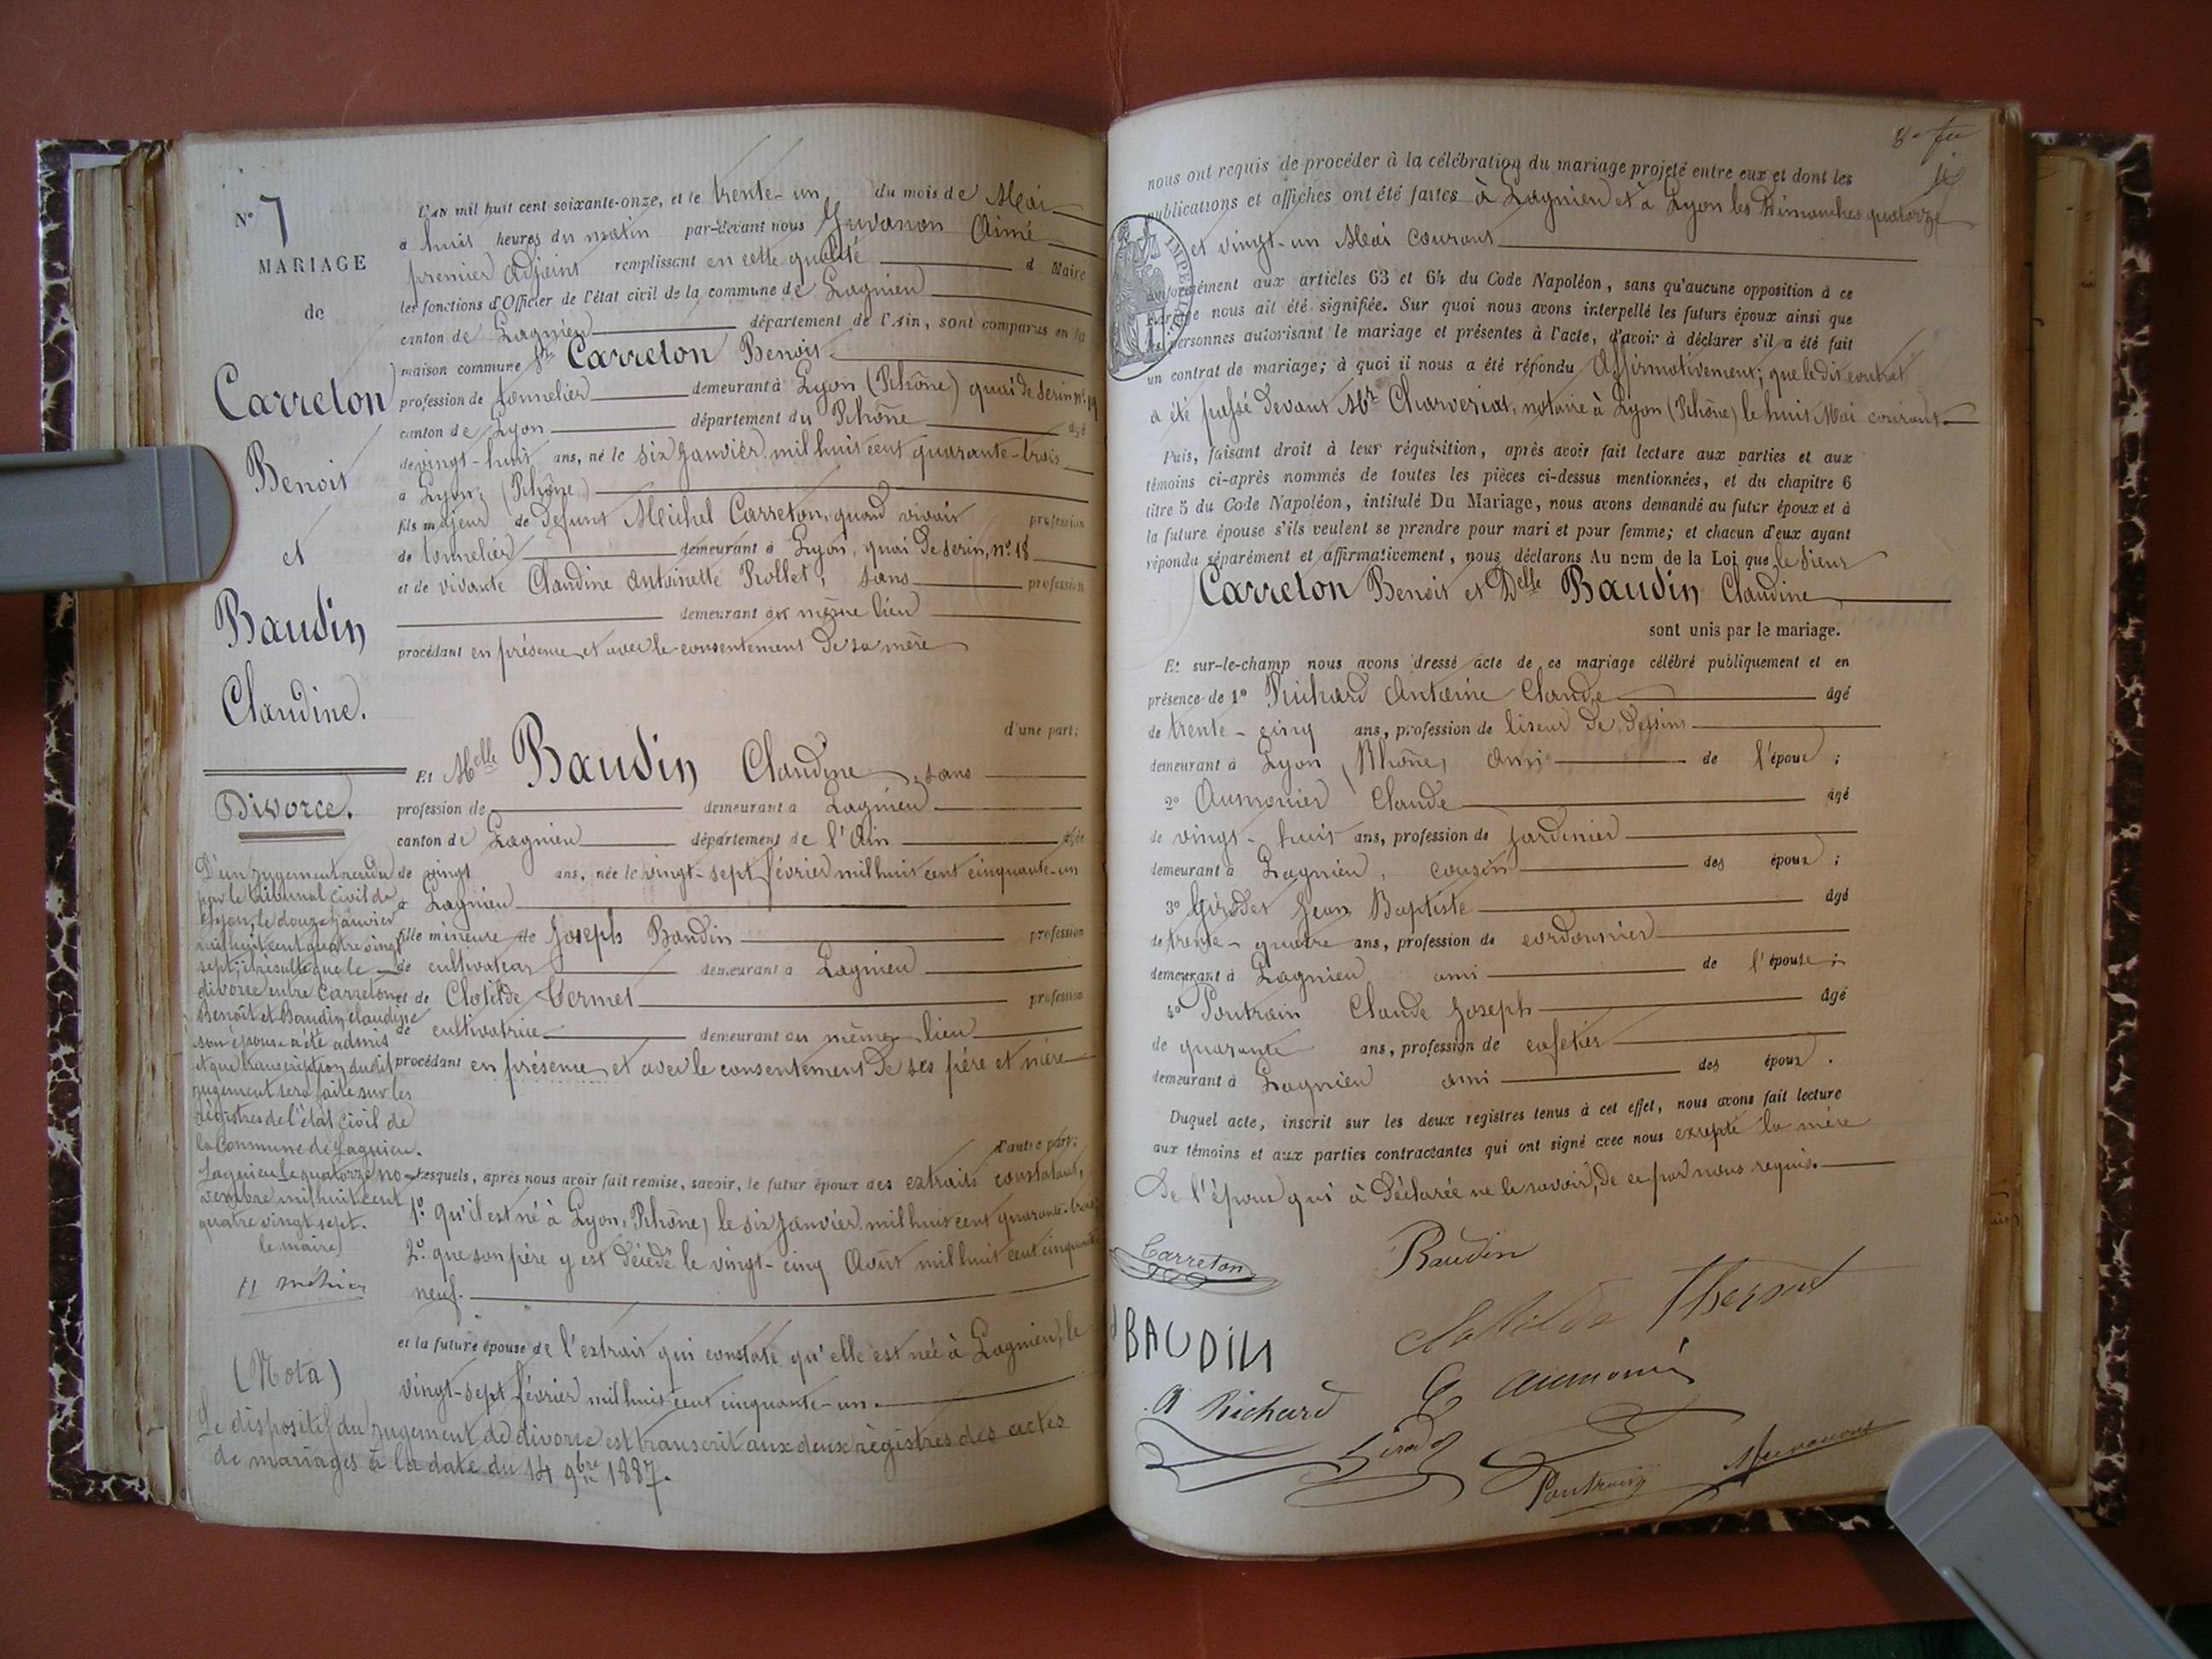 N° 7
MARIAGE
de
Carreton
Benoit
et
Baudin
Claudine.
Divorce.
D'un jugement rendu
par le tribunal civil de
Lyon, le douze janvier
mil huit cent quatre vingt
sept; il résulte que le
divorce entre Carreton
Benoît et Baudin Claudine
son épouse a été admis
et que transcription dudit
jugement sera faite sur les
régistres de l'état civil de
la Commune de Lagnieu.
Lagnieu le quatorze no-
vembre mil huit cent
quatre vingt sept.
le maire
(Nota)
L'an mil huit cent soixante-onze, et le trente-un du mois de Mai
à huit heures du matin par-devant nous Juvanon Aimé
premier adjoint remplissant en cette qualité d Maire
les fonctions d'Officier de l'état civil de la commune de Lagnieu
canton de Lagnieu département de l'Ain, sont comparus en la
maison commune Sr Carreton Benoit
profession de tonnelier demeurant à Lyon (Rhône) quai de serin n°
canton de Lyon département du Rhône âgé
de vingt-huit ans, né le six Janvier mil huit cent quarante-trois
à Lyon, (Rhône)
fils majeur de Défunt Michel Carreton, quand vivait profession
de tonnelier demeurant à Lyon, quai de serin, n° 18
et de vivante Claudine Antoinette Rollet, sans profession
demeurant au même lieu
procédant en présence et avec le consentement de sa mère
d'une part;
Et Melle Baudin Claudine, sans
profession de demeurant à Lagnieu
canton de Lagnieu département de l'Ain âgée
de vingt ans, née le vingt-sept février mil huit cent cinquante-un
à Lagnieu
fille mineure de Joseph Baudin profession
de cultivateur demeurant à Lagnieu
et de Clotilde Vermet profession
de cultivatrice demeurant au même lieu
procédant en présence et avec le consentement de ses père et mère
d'autre part;
Lesquels, après nous avoir fait remise, savoir, le futur époux des extraits constatant,
1° qu'il est né à Lyon, Rhône, le six Janvier mil huit cent quarante-trois
2° que son père y est décédé le vingt-cinq Août mil huit cent cinquante
neuf.
et la future épouse de l'extrait qui constate qu'elle est née à Lagnieu, le
vingt-sept février mil huit cent cinquante-un.
Le dispositif du jugement de divorce est transcrit aux deux régistres des actes
de mariages à la date du 14 9bre 1887.
nous ont requis de procéder à la célébration du mariage projeté entre eux et dont les
publications et affiches ont été faites à Lagnieu et à Lyon les Dimanches quatorze
et vingt-un Mai courant
conformément aux articles 63 et 64 du Code Napoléon, sans qu'aucune opposition à ce
mariage nous ait été signifiée. Sur quoi nous avons interpellé les futurs époux ainsi que
les personnes autorisant le mariage et présentes à l'acte, d'avoir à déclarer s'il a été fait
un contrat de mariage; à quoi il nous a été répondu Affirmativement; que le dit contrat
a été passé devant Me Charvériat, notaire à Lyon (Rhône) le huit Mai courant
Puis, faisant droit à leur réquisition, après avoir fait lecture aux parties et aux
témoins ci-après nommés de toutes les pièces ci-dessus mentionnées, et du chapitre 6
titre 5 du Code Napoléon, intitulé Du Mariage, nous avons demandé au futur époux et à
la future épouse s'ils veulent se prendre pour mari et pour femme; et chacun d'eux ayant
répondu séparément et affirmativement, nous déclarons Au nom de la Loi que le sieur
Carreton Benoit et Delle Baudin Claudine
sont unis par le mariage.
Et sur-le-champ nous avons dressé acte de ce mariage célébré publiquement et en
présence de 1° Richard Antoine Claude âgé
de trente-cinq ans, profession de liseur de Dessins
demeurant à Lyon, Rhône, ami de l'époux;
2° Aumonier Claude âgé
de vingt-huit ans, profession de Jardinier
demeurant à Lagnieu, cousin des époux;
3° Girodet Jean Baptiste âgé
de trente-quatre ans, profession de cordonnier
demeurant à Lagnieu ami de l'épouse;
4° Poutrain Claude Joseph âgé
de quarante ans, profession de cafetier
demeurant à Lagnieu ami des époux.
Duquel acte, inscrit sur les deux registres tenus à cet effet, nous avons fait lecture
aux témoins et aux parties contractantes qui ont signé avec nous excepté la mère
de l'époux qui à déclarée ne le savoir, de ce par nous requis.
Carreton
Baudin
BAUDIN
A Richard
C Aumonié
Poutrain